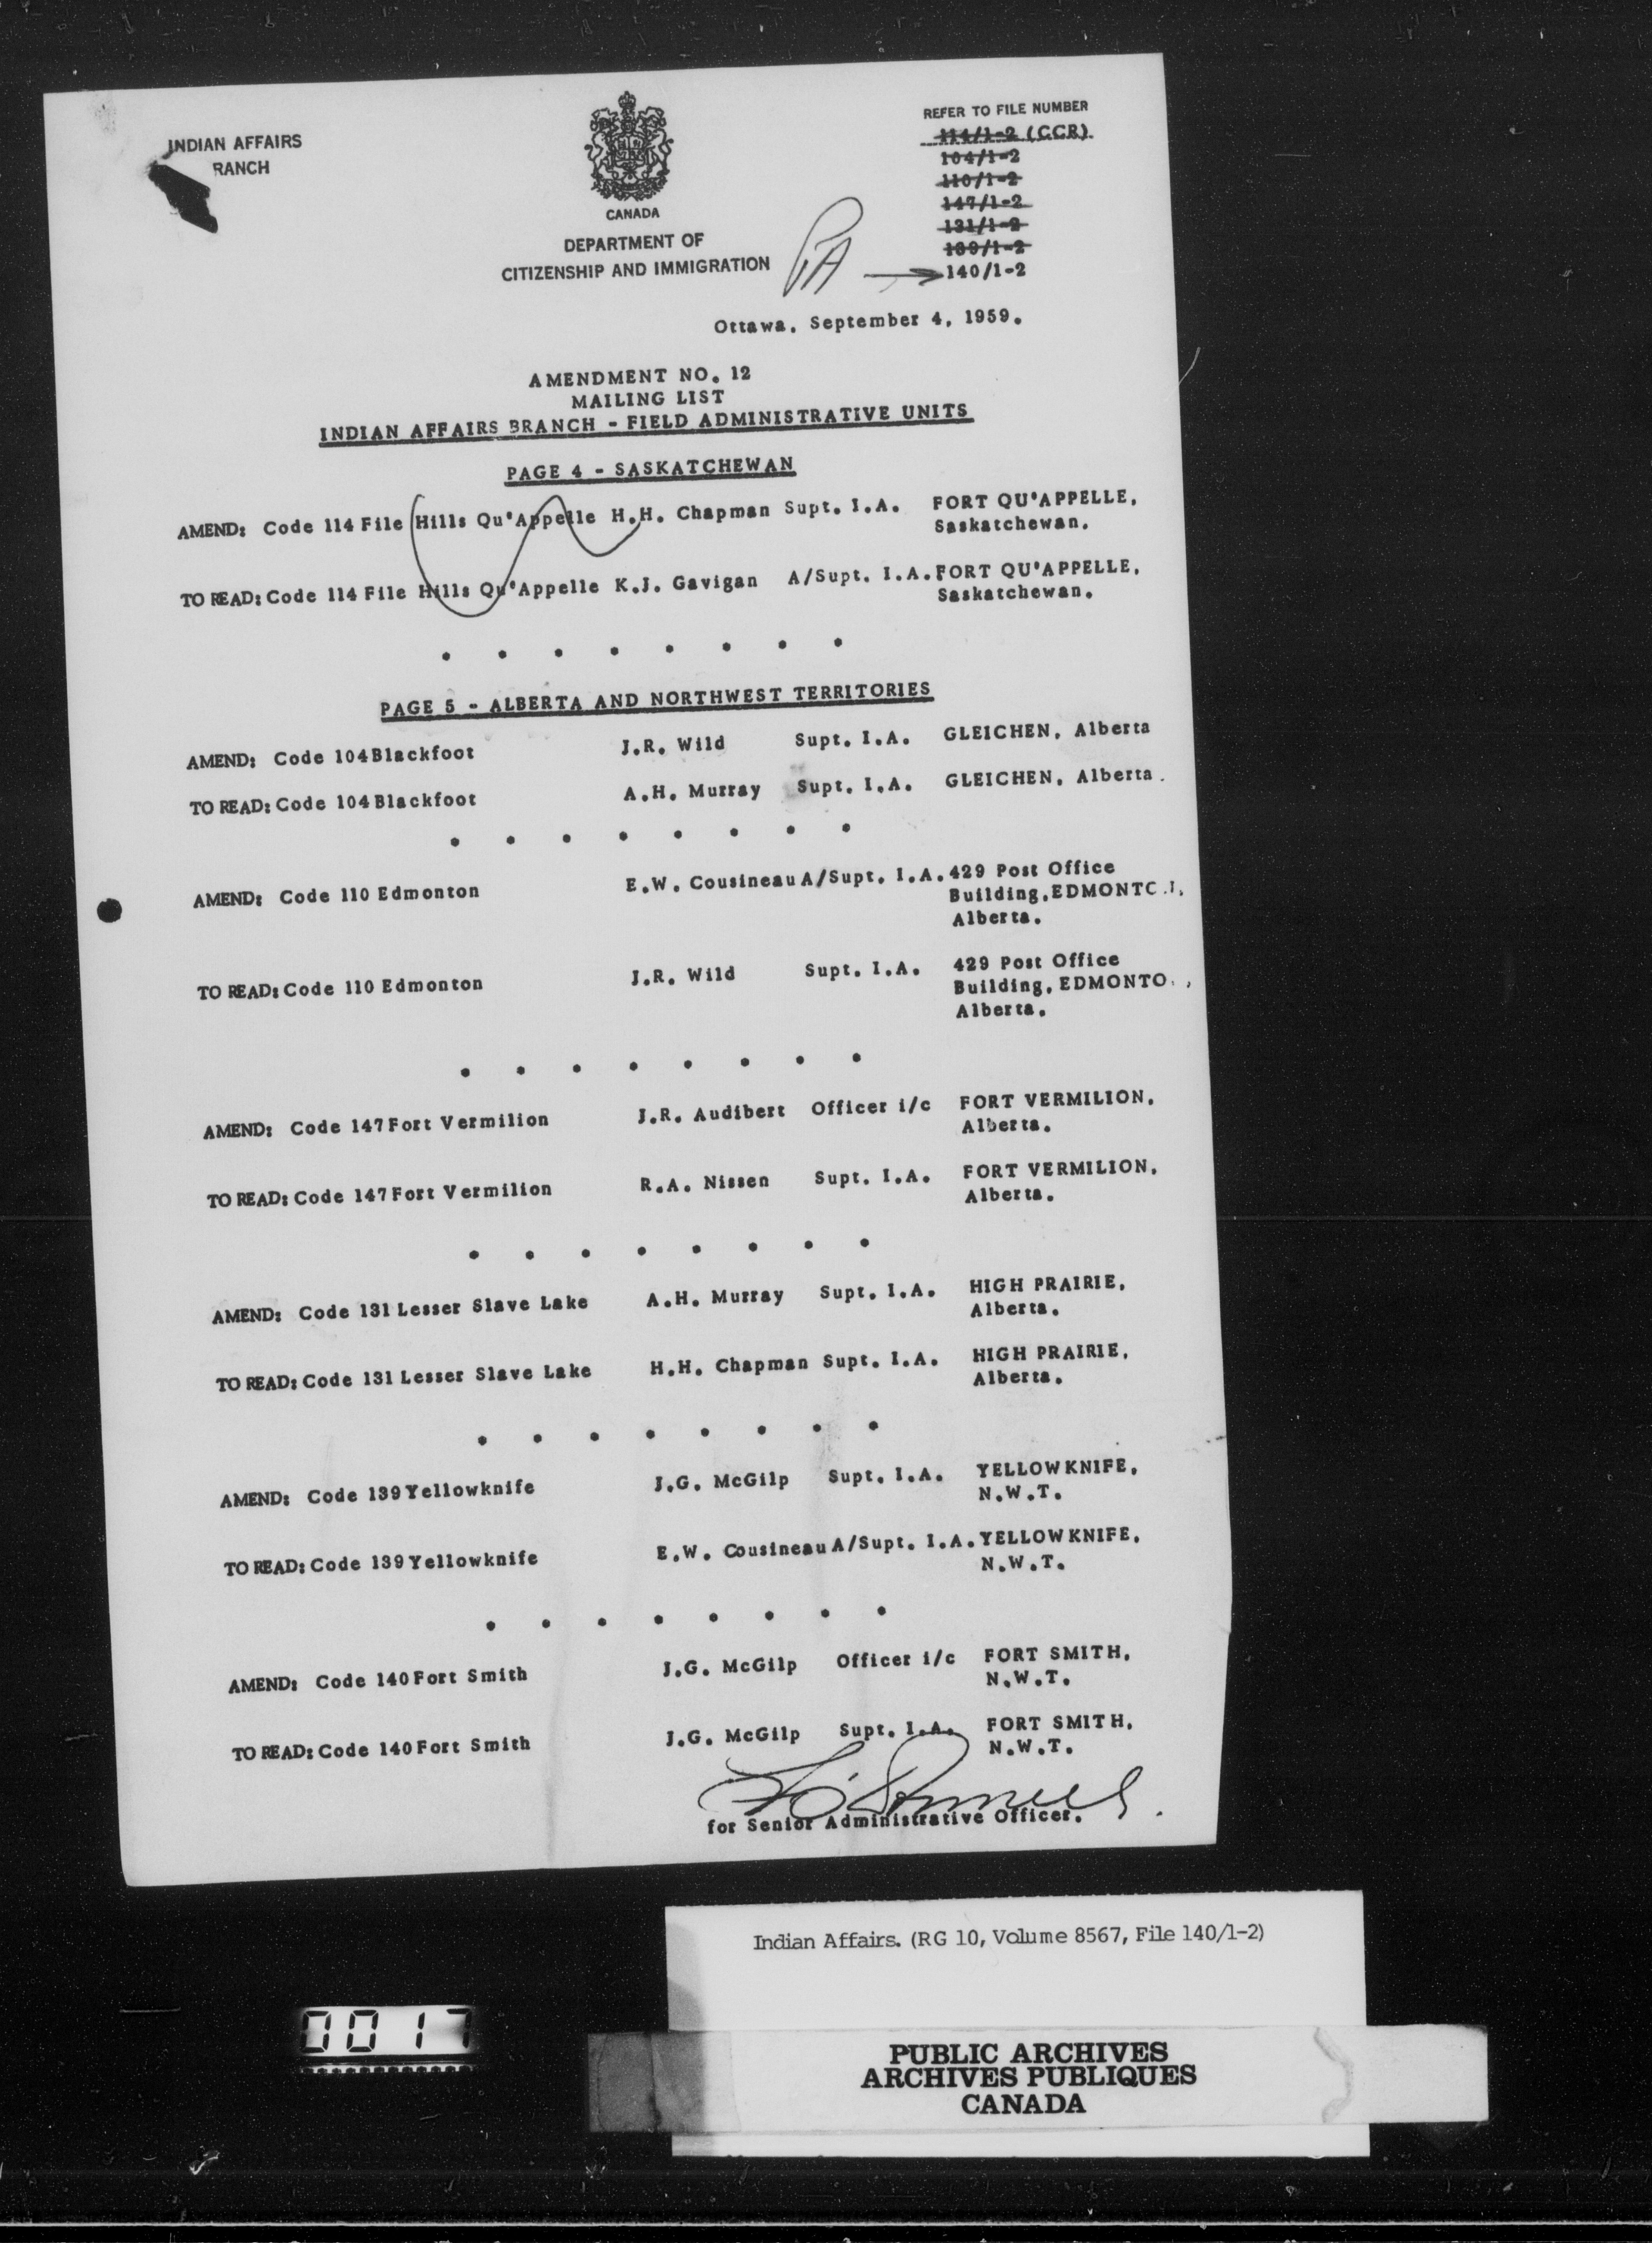 INDIAN AFFAIRS
RANCH
CANADA
DEPARTMENT OF
CITIZENSHIP AND IMMIGRATION
REFER TO FILE NUMBER
114/1-2 (CCR)
104/1-2
110/1-2
147/1-2
131/1-2
139/1-2
140/1-2
PA
Ottawa, September 4, 1959.
AMENDMENT NO. 12
MAILING LIST
INDIAN AFFAIRS BRANCH - FIELD ADMINISTRATIVE UNITS
PAGE 4 - SASKATCHEWAN
AMEND: Code 114 File Hills Qu'Appelle H.H. Chapman Supt. I.A. FORT QU'APPELLE,
Saskatchewan.
TO READ: Code 114 File Hills Qu'Appelle K.J. Gavigan A/Supt. I.A. FORT QU'APPELLE,
Saskatchewan.
. . . . . . . .
PAGE 5 - ALBERTA AND NORTHWEST TERRITORIES
AMEND: Code 104 Blackfoot J.R. Wild Supt. I.A. GLEICHEN, Alberta
TO READ: Code 104 Blackfoot A.H. Murray Supt. I.A. GLEICHEN, Alberta.
. . . . . . . .
AMEND: Code 110 Edmonton E.W. Cousineau A/Supt. I.A. 429 Post Office
Building, EDMONTON,
Alberta.
TO READ: Code 110 Edmonton J.R. Wild Supt. I.A. 429 Post Office
Building, EDMONTO ,
Alberta.
. . . . . . . .
AMEND: Code 147 Fort Vermilion J.R. Audibert Officer i/c FORT VERMILION,
Alberta.
TO READ: Code 147 Fort Vermilion R.A. Nissen Supt. I.A. FORT VERMILION,
Alberta.
. . . . . . . .
AMEND: Code 131 Lesser Slave Lake A.H. Murray Supt. I.A. HIGH PRAIRIE,
Alberta.
TO READ: Code 131 Lesser Slave Lake H.H. Chapman Supt. I.A. HIGH PRAIRIE,
Alberta.
. . . . . . . .
AMEND: Code 139 Yellowknife J.G. McGilp Supt. I.A. YELLOWKNIFE,
N.W.T.
TO READ: Code 139 Yellowknife E.W. Cousineau A/Supt. I.A. YELLOWKNIFE,
N.W.T.
. . . . . . . .
AMEND: Code 140 Fort Smith J.G. McGilp Officer i/c FORT SMITH,
N.W.T.
TO READ: Code 140 Fort Smith J.G. McGilp Supt. I.A. FORT SMITH,
N.W.T.
for Senior Administrative Officer.
Indian Affairs. (RG 10, Volume 8567, File 140/1-2)
0017
PUBLIC ARCHIVES
ARCHIVES PUBLIQUES
CANADA